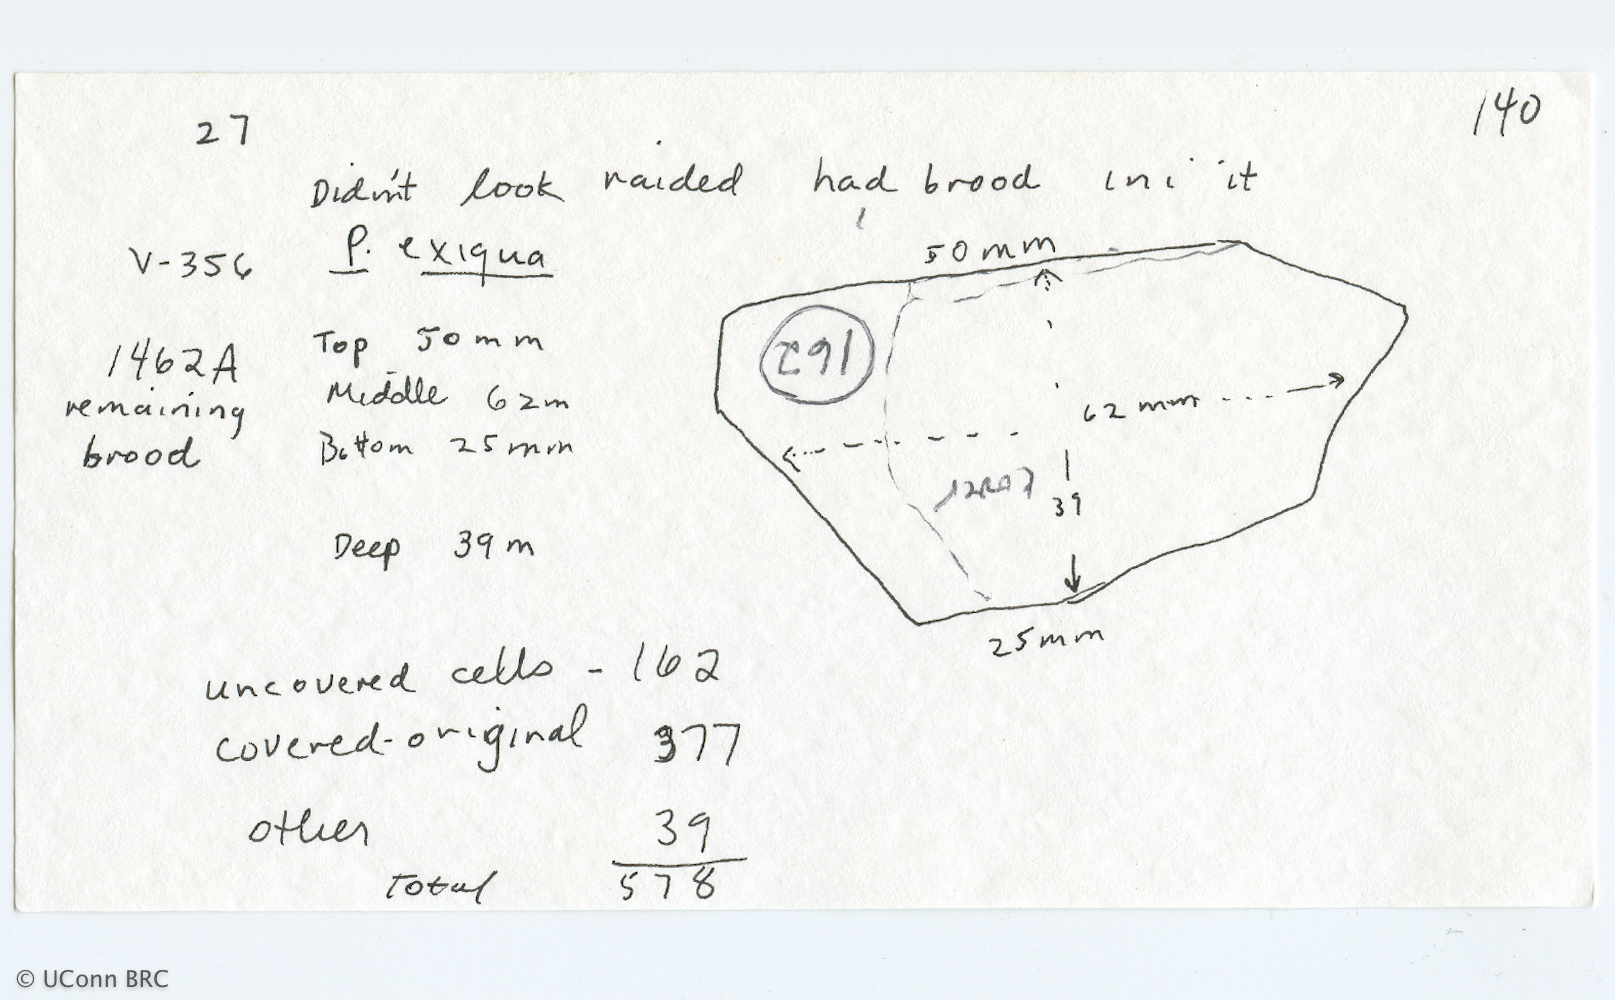 27
140
Didn't look raided had brood in it
V-356
P. exiqua
1462A
remaining
brood
Top 50mm
Middle 62m
Bottom 25mm
Deep 39m
50mm
162
62 mm
39
25mm
uncovered cells - 162
covered-original 377
other 39
Total 578
© UConn BRC